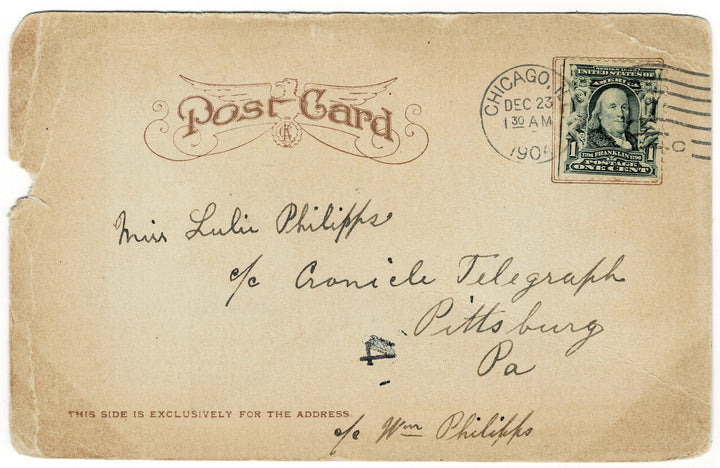 Post Card
CHICAGO, ILL
DEC 23
1 30 AM
190
SERIES 1902
UNITED STATES OF
AMERICA
1706 FRANKLIN 1790
1 POSTAGE 1
ONE CENT
C
Miss Lulu Philipps
c/o Cronicle Telegraph
Pittsburg
Pa
4
THIS SIDE IS EXCLUSIVELY FOR THE ADDRESS.
c/o Wm Philipps